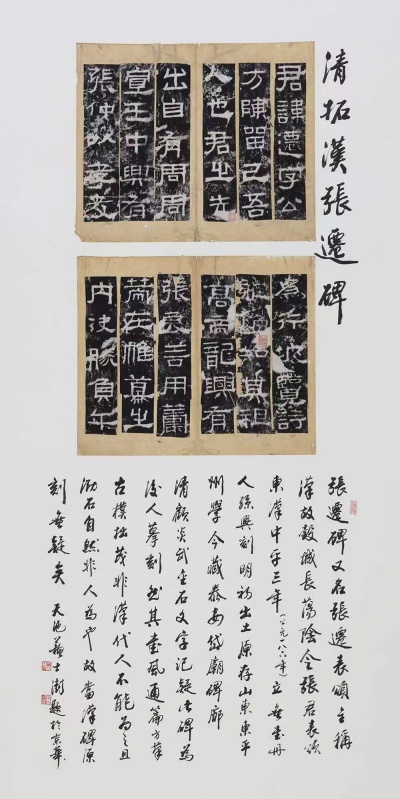 清拓漢張遷碑
君諱遷字公
方陳留己吾
人也君之先
出自有周周
宣王中興有
張仲以孝友
為行披覽詩
雅煥知其祖
高帝龍興有
張良善用籌
策在帷幕之
內決勝負千
張遷碑又名張遷表頌全稱
漢故穀城長蕩陰令張君表頌
東漢中平三年（公元一八六年）立無書丹
人孫興刻明初出土原存山東東平
州學今藏泰安岱廟碑廊
清顧炎武金石文字記疑此碑為
後人摹刻然其書風通篇方筆
古樸拙茂非漢代人不能為之且
泐石自然非人為也故當漢碑原
刻無疑矣 天池蘇士澍題於京華